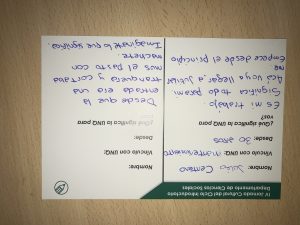 IV Jornada Cultural del Ciclo Introductorio
Departamento de Ciencias Sociales
Nombre: Julio
Vínculo con UNQ: mantenimiento
Desde: 30 años
¿Qué significa la UNQ para
vos?
Es mi trabajo.
Significa todo para mi.
Acá voy a llegar a jubilar
me
Empece desde el principio
Nombre:
Vínculo con UNQ:
Desde:
¿Qué significa la UNQ para
Desde que la
entrada era una
tranquera y cortaba
mos el pasto con
machete.
Imaginate lo que significa